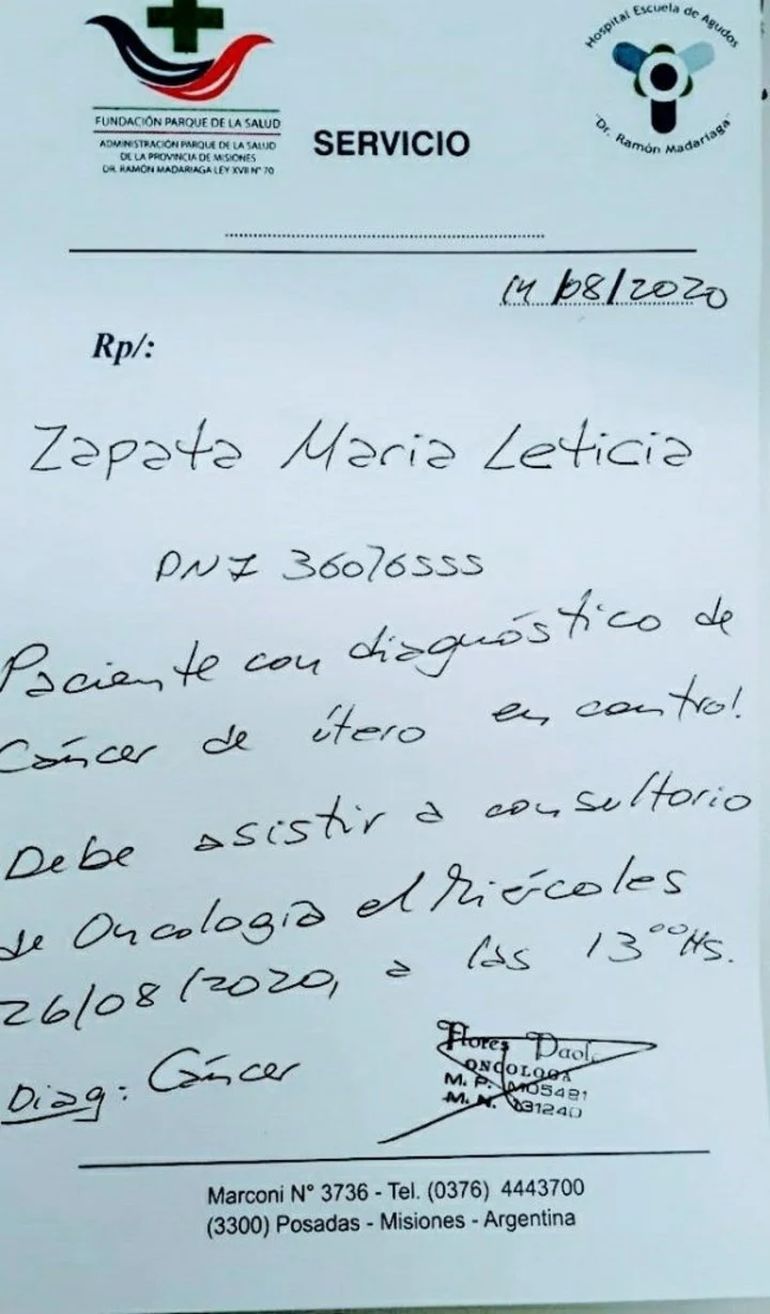 FUNDACIÓN PARQUE DE LA SALUD
ADMINISTRACIÓN PARQUE DE LA SALUD
DE LA PROVINCIA DE MISIONES
DR. RAMÓN MADARIAGA LEY XVII N° 70
SERVICIO
Hospital Escuela de Agudos
"Dr. Ramón Madariaga"
14/08/2020
Rp/:
Zapata Maria Leticia
DNI 36076555
Paciente con diagnóstico de
Cáncer de útero en control.
Debe asistir a consultorio
de Oncologia el Miércoles
26/08/2020, a las 13⁰⁰ Hs.
Diag: Cáncer
Flores Paol
ONCOLOGA
M. P. M05481
M. N. 131240
Marconi N° 3736 - Tel. (0376) 4443700
(3300) Posadas - Misiones - Argentina